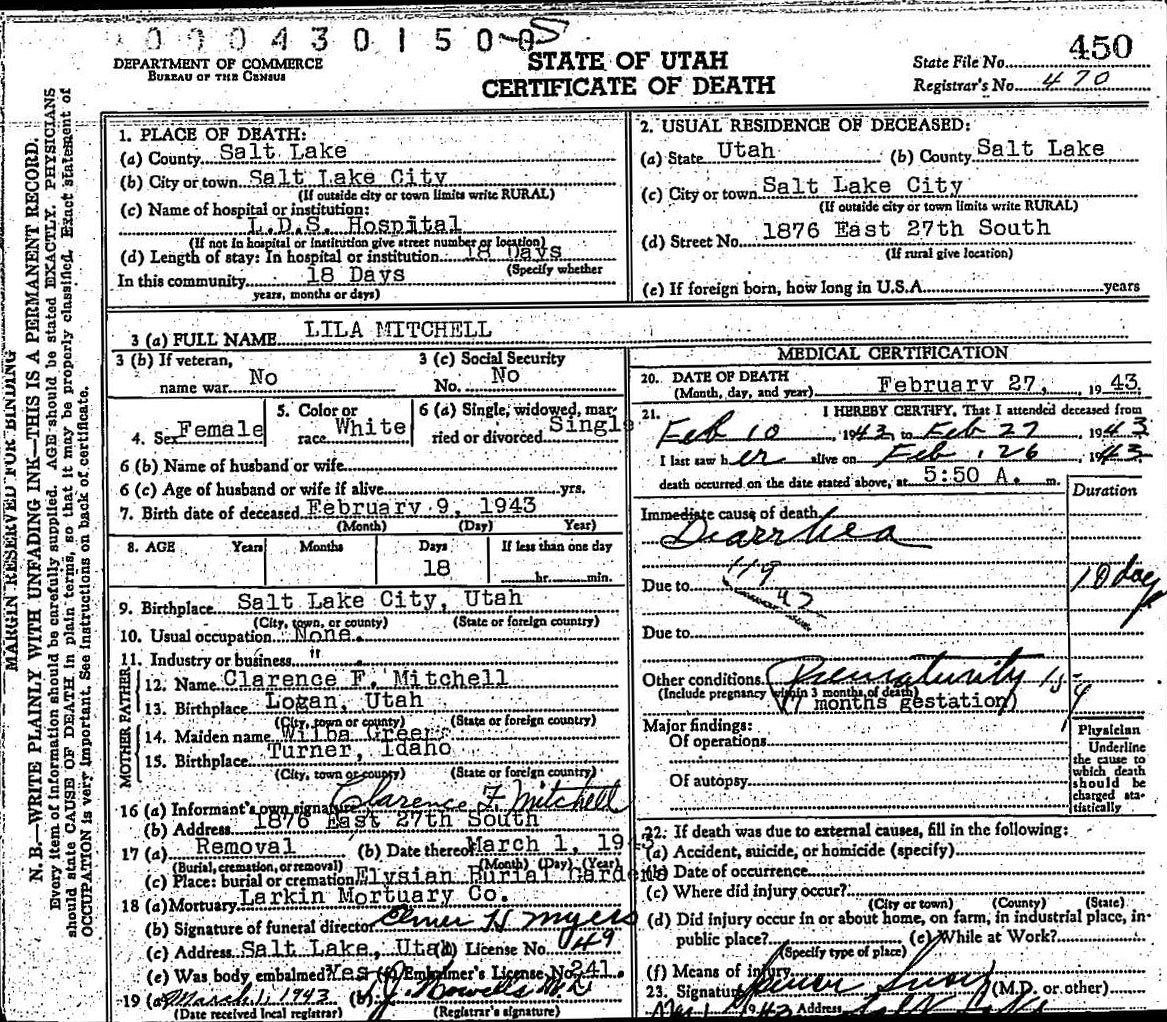 0 0 0 4 3 0 1 5 0
450
DEPARTMENT OF COMMERCE
BUREAU OF THE CENSUS
STATE OF UTAH
CERTIFICATE OF DEATH
State File No.
Registrar's No. 470
MARGIN RESERVED FOR BINDING
N. B.—WRITE PLAINLY WITH UNFADING INK—THIS IS A PERMANENT RECORD.
Every item of information should be carefully supplied. AGE should be stated EXACTLY. PHYSICIANS
should state CAUSE OF DEATH in plain terms, so that it may be properly classified. Exact statement of
OCCUPATION is very important. See instructions on back of certificate.
1. PLACE OF DEATH:
(a) County Salt Lake
(b) City or town Salt Lake City
(If outside city or town limits write RURAL)
(c) Name of hospital or institution:
L.D.S. Hospital
(If not in hospital or institution give street number or location)
(d) Length of stay: In hospital or institution 18 Days
(Specify whether
In this community 18 Days
years, months or days)
2. USUAL RESIDENCE OF DECEASED:
(a) State Utah (b) County Salt Lake
(c) City or town Salt Lake City
(If outside city or town limits write RURAL)
(d) Street No. 1876 East 27th South
(If rural give location)
(e) If foreign born, how long in U.S.A. years
3 (a) FULL NAME LILA MITCHELL
3 (b) If veteran,
name war No
3 (c) Social Security
No. No
4. Sex Female
5. Color or
race White
6 (a) Single, widowed, mar-
ried or divorced Single
6 (b) Name of husband or wife
6 (c) Age of husband or wife if alive yrs.
7. Birth date of deceased February 9, 1943
(Month) (Day) Year)
8. AGE Years Months Days If less than one day
18
hr. min.
9. Birthplace Salt Lake City, Utah
(City, town, or county) (State or foreign country)
10. Usual occupation None.
11. Industry or business "
FATHER
12. Name Clarence F. Mitchell
13. Birthplace Logan, Utah
(City, town or county) (State or foreign country)
MOTHER
14. Maiden name Wilba Green
15. Birthplace Turner, Idaho
(City, town or county) (State or foreign country)
16 (a) Informant's own signature Clarence F Mitchell
(b) Address 1876 East 27th South
17 (a) Removal (b) Date thereof March 1, 1943
(Burial, cremation, or removal) (Month) (Day) (Year)
(c) Place: burial or cremation Elysian Burial Gardens
18 (a) Mortuary Larkin Mortuary Co.
(b) Signature of funeral director Elmer H Myers
(c) Address Salt Lake, Utah (d) License No. 49
(e) Was body embalmed? Yes (f) Embalmer's License No. 241.
19 (a) March 1, 1943 (b)
(Date received local registrar) (Registrar's signature)
MEDICAL CERTIFICATION
20. DATE OF DEATH
(Month, day, and year) February 27, 1943.
21. I HEREBY CERTIFY, That I attended deceased from
Feb 10, 1943 to Feb 27, 1943
I last saw her alive on Feb 26 1943
death occurred on the date stated above, at 5:50 A. m.
Duration
Immediate cause of death
Diarrhea
Due to 119
10 day
Due to
Other conditions Prematurity
(Include pregnancy within 3 months of death)
(7 months gestation)
Major findings:
Of operations
Of autopsy
Physician
Underline
the cause to
which death
should be
charged sta-
tistically
22. If death was due to external causes, fill in the following:
(a) Accident, suicide, or homicide (specify)
(b) Date of occurrence
(c) Where did injury occur?
(City or town) (County) (State)
(d) Did injury occur in or about home, on farm, in industrial place, in-
public place? (e) While at Work?
(Specify type of place)
(f) Means of injury
23. Signature (M.D. or other)
1943 Address